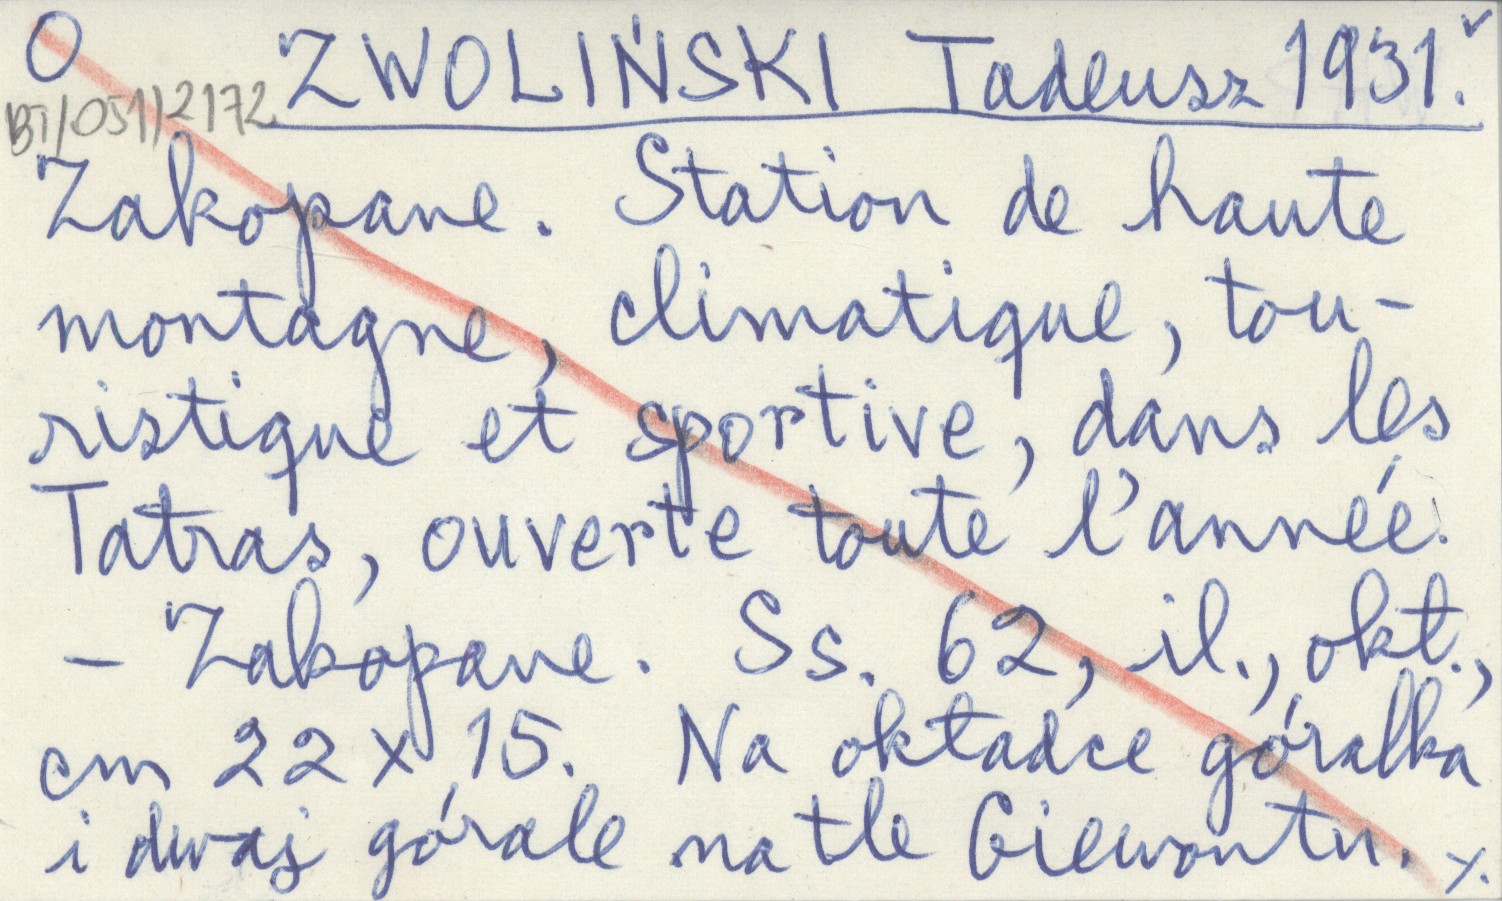 O ZWOLIŃSKI Tadeusz 1931.
BT/051/2172
Zakopane. Station de haute
montagne, climatique, tou-
ristique et sportive, dans les
Tatras, ouverte toute l'année.
– Zakopane. Ss. 62, il., okł.,
cm 22 x 15. Na okładce góralka
i dwaj górale na tle Giewontu.